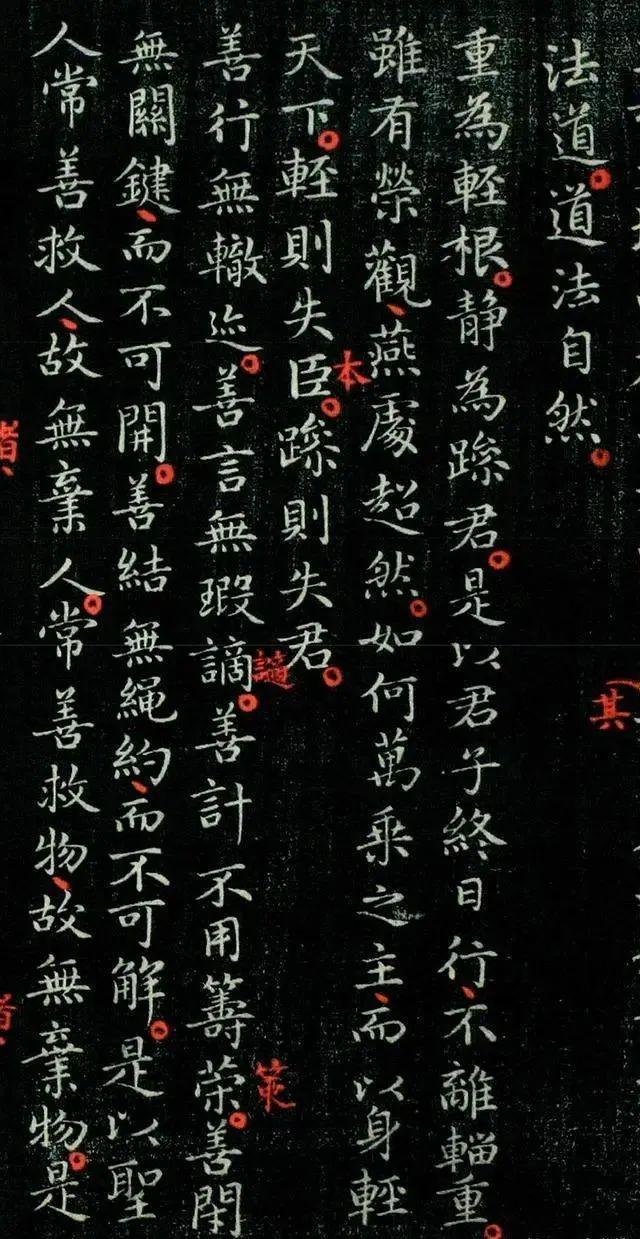 法道。道法自然。
重為輊根。静為躁君。是以君子終日行、不離輜重。
雖有榮觀、燕處超然。如何萬乗之主、而以身輕
天下。輊則失臣。躁則失君。
本
善行無轍迹。善言無瑕謫。善計不用籌荣。善閇
讁
筞
無關鍵、而不可開。善結無繩約、而不可解。是以聖
人常善救人、故無棄人。常善救物、故無棄物。是
其